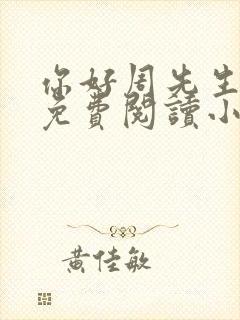 你好周先生
免費閱讀小
黃佳敏